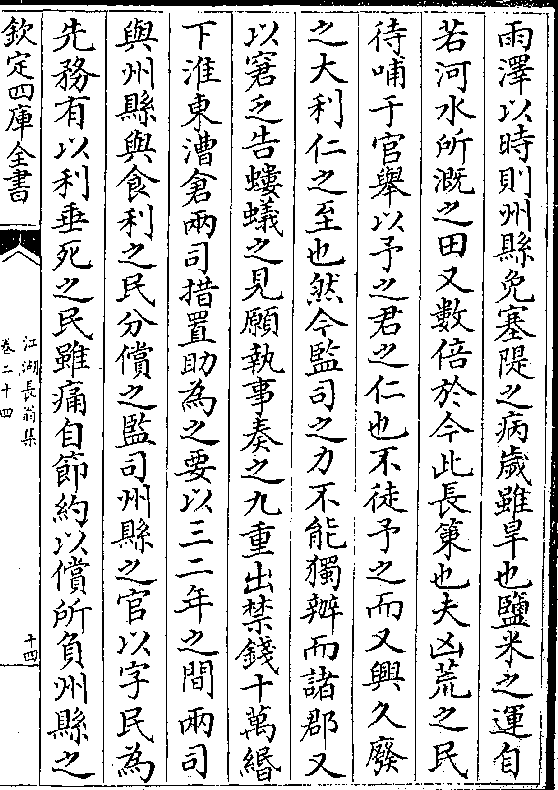 雨澤以時則州縣免塞隄之病歲雖旱也鹽米之運自
若河水所溉之田又數倍於今此長策也夫凶荒之民
待哺于官舉以予之君之仁也不徒予之而又興久廢
之大利仁之至也然今監司之力不能獨辦而諸郡又
以窘乏告螻蟻之見願執事奏之九重出禁錢十萬緡
下淮東漕倉兩司措置助為之要以三二年之間兩司
與州縣與食利之民分償之監司州縣之官以字民為
先務有以利垂死之民雖痛自節約以償所負州縣之
欽定四庫全書
江湖長翁集
卷二十四
十四